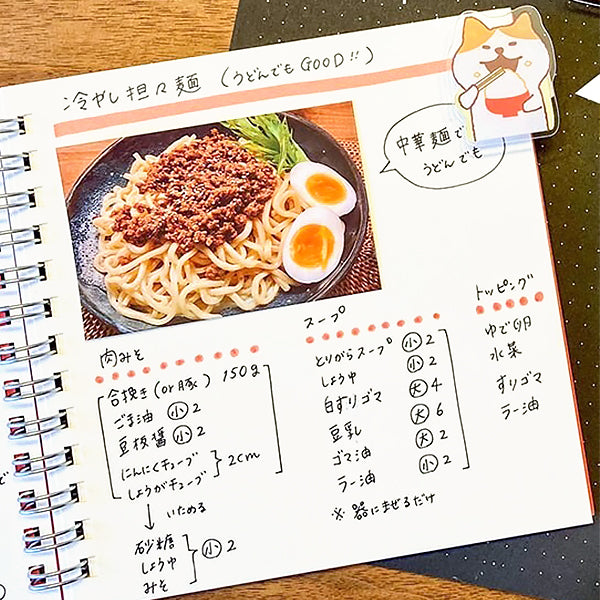 冷やし担々麺（うどんでもGOOD!!）
中華麺でも
うどんでも
肉みそ
合挽き（or豚）150g
ごま油 小2
豆板醤 小2
にんにくチューブ
しょうがチューブ
2cm
↓いためる
砂糖
しょうゆ
みそ
小2
スープ
とりがらスープ 小2
しょうゆ 小2
白すりゴマ 大4
豆乳 大6
ゴマ油 大2
ラー油 小2
※器にまぜるだけ
トッピング
ゆで卵
水菜
すりゴマ
ラー油